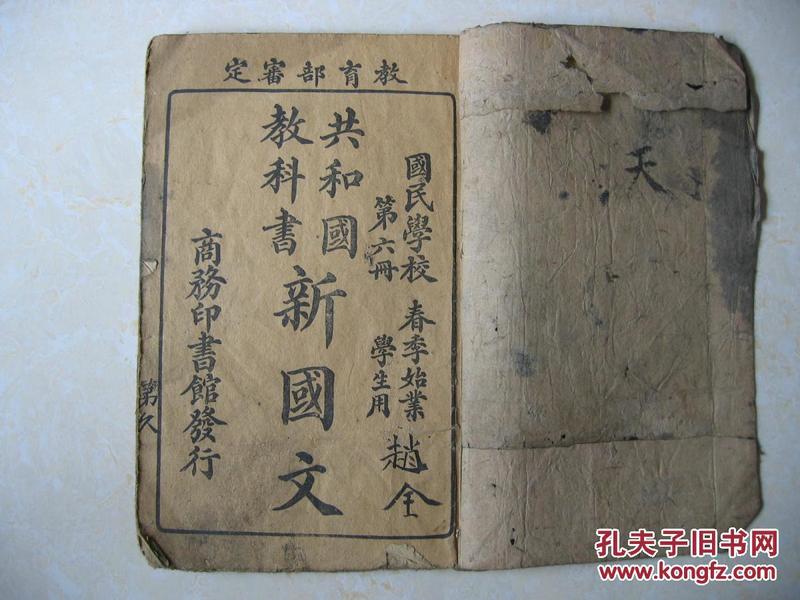 教育部審定
國民學校 春季始業
第六冊 學生用
趙全
共和國
教科書
新國文
商務印書館發行
第
天
孔夫子旧书网
www.kongfz.com